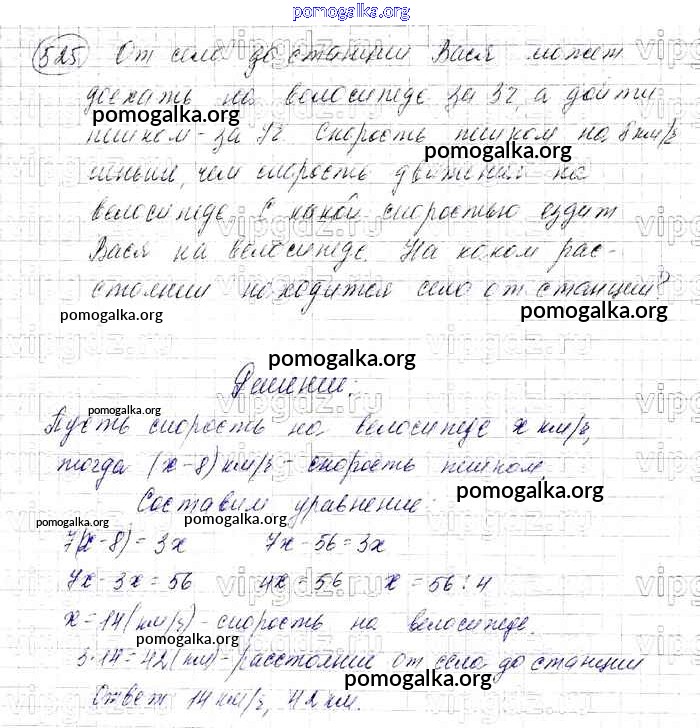 pomogalka.org
525 От села до станции Вася может
доехать на велосипеде за 3ч, а дойти
pomogalka.org
пешком - за 7ч Скорость пешком на 8 км/ч
pomogalka.org
меньше, чем скорость движения на
велосипеде. С какой скоростью ездит
Вася на велосипеде. На каком рас-
стоянии находится село от станции?
pomogalka.org pomogalka.org
vipgdz.ru
pomogalka.org
Решение:
pomogalka.org
Пусть скорость на велосипеде х км/ч,
тогда (х-8) км/ч - скорость пешком
pomogalka.org
Составим уравнение:
pomogalka.org pomogalka.org
7(х-8)=3х 7х-56=3х
7х-3х=56 4х=56 х=56:4
х=14(км/ч)-скорость на велосипеде.
pomogalka.org
3·14=42(км)-расстояние от села до станции
pomogalka.org
Ответ 14 км/ч, 42 км.